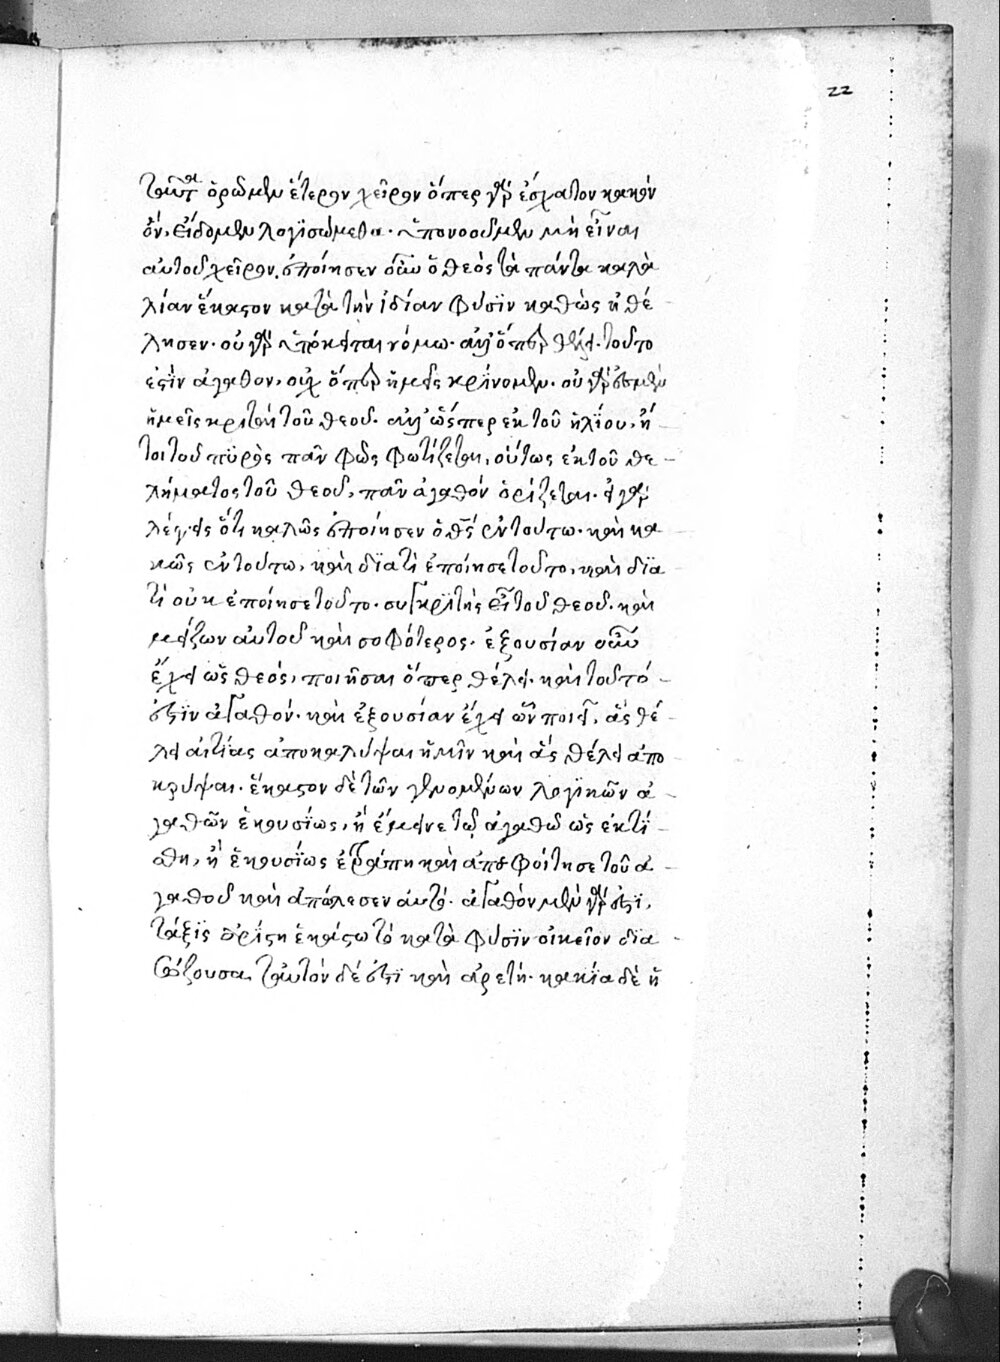 22
ταῦτα ὁρῶμεν ἕτερον χεῖρον ὅπερ γὰρ ἔσχατον κακὸν
ὂν, εἴδομεν λογϊσώμεθα. ὑπονοοῦμεν μὴ εἶναι
αὐτοῦ χεῖρον. ἐποίησεν οὖν ὁ θεὸς τὰ πάντα καλὰ
λίαν ἕκαστον κατὰ τὴν ἰδίαν φύσϊν καθὼς ἠθέ-
λησεν. οὐ γὰρ ὑπόκειται νόμω. ἀλλ' ὅπερ θέλει. τοῦτο
ἐστϊν ἀγαθον, οὐχ ὅπερ ἡμεῖς κρίνομεν. οὐ γάρ ἐσμεν
ἡμεῖς κριταὶ τοῦ θεοῦ. ἀλλ' ὥσπερ ἐκ τοῦ ἡλϊου, ἤ
τοι τοῦ πϋρὸς πᾶν φῶς φωτίζεται, οὕτως ἐκ τοῦ θε-
λήματος τοῦ θεοῦ, πᾶν ἀγαθόν ὁρίζεται. εἰ γὰρ
λέγεις ὅτι καλῶς ἐποίησεν ὁ θς ἐν τούτω. καὶ κα
κῶς ἐν τούτω, καὶ δϊατὶ ἐποίησε τοῦτο, καὶ δϊα-
τὶ οὐκ ἐποίησε τοῦτο. συγκρϊτὴς εἶ τοῦ θεοῦ. καὶ
μείζων αὐτοῦ καὶ σοφότερος. ἐξουσίαν οὖν
ἔχει ὡς θεός, ποιῆσαι ὅπερ θέλει. καὶ τοῦτό-
ἐστϊν ἀγαθόν. καὶ ἐξουσίαν ἔχει ὧν ποιεῖ, ἃς θέ-
λει αἰτίας ἀποκαλύψαι ἡμῖν καὶ ἃς θέλει ἀπο
κρυψαι. ἕκαστον δὲ τῶν γενομένων λογϊκῶν ἀ-
γαθῶν ἑκουσίως, ἢ ἔμεινε τῷ ἀγαθῶ ὡς ἐκτί-
σθη, ἢ ἑκουσΐως ἐτράπη καὶ ἀπεφοίτησε τοῦ ἀ-
γαθοῦ καὶ ἀπώλεσεν αὐτό. ἀγαθὸν μὲν γὰρ ἐστϊ,
τάξϊς ἀρίστη ἑκάστω τὸ κατὰ φύσϊν οἰκεῖον δϊα-
σώζουσα. ταὐτὸν δέ ἐστϊ καὶ ἀρετή. κακία δὲ ἡ